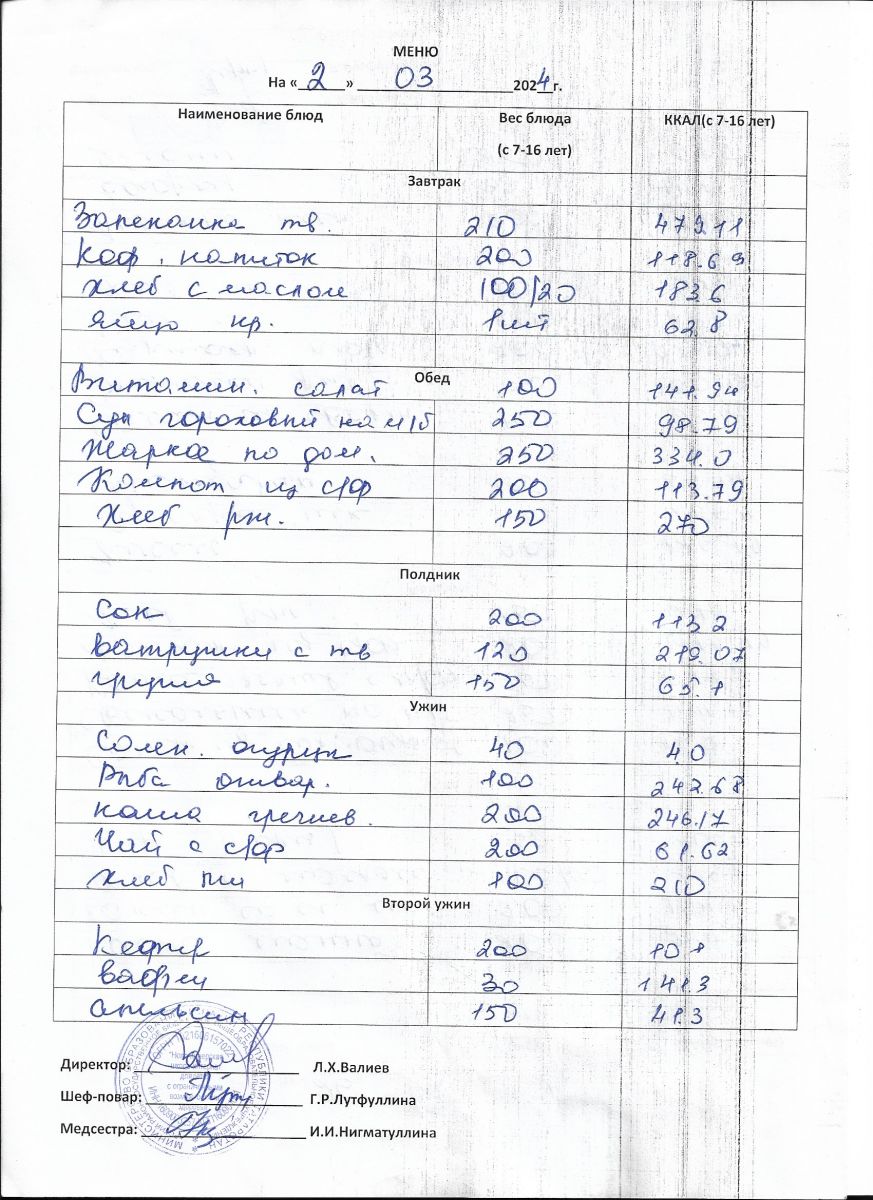 МЕНЮ
На « 2 » 03 2024 г.
Наименование блюд Вес блюда (с 7-16 лет) ККАЛ(с 7-16 лет)
Завтрак
Запеканка тв. 210 479.11
Коф. напиток 200 118.69
Хлеб с маслом 100/20 183.6
Яйцо кр. 1шт 62.8
Обед
Витамин. салат 100 141.94
Суп гороховый на м/б 250 98.79
Жаркое по дом. 250 334.0
Компот из с/ф 200 113.79
Хлеб рж. 150 270
Полдник
Сок 200 113.2
Ватрушки с тв 120 219.07
груша 150 65.1
Ужин
Солен. огурцы 40 4.0
Рыба отвар. 100 242.68
каша гречнев. 200 246.17
Чай с с/ф 200 61.62
Хлеб пш 100 210
Второй ужин
Кефир 200 101
вафли 30 141.3
апельсин 150 41.3
Директор: Л.Х.Валиев
Шеф-повар: Г.Р.Лутфуллина
Медсестра: И.И.Нигматуллина